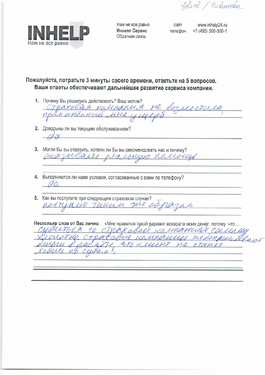 INHELP
Нам не все равно
Нам не все равно
Инхелп Сервис
Обратная связь
сайт
телефон
www.inhelp24.ru
Пожалуйста, потратьте 3 минуты своего времени, ответьте на 5 вопросов.
Ваши ответы обеспечивают дальнейшее развитие сервиса компании.
1. Почему Вы решили действовать? Ваш мотив?
страховая компания не возместила
причиненный мне ущерб
2. Довольны ли вы текущим обслуживанием?
да
3. Могли бы вы ответить, хотели ли бы вы рекомендовать нас и почему?
оказывают реальную помощь
4. Выполняются ли нами условия, согласованные с вами по телефону?
да
5. Как вы поступите при следующем страховом случае?
поступлю таким же образом
Несколько слов от Вас лично. «Мне нравится такой вариант возврата моих денег, потому что
судиться со страховой компанией самому
страховые компании
что клиент не станет
ходить по судам!